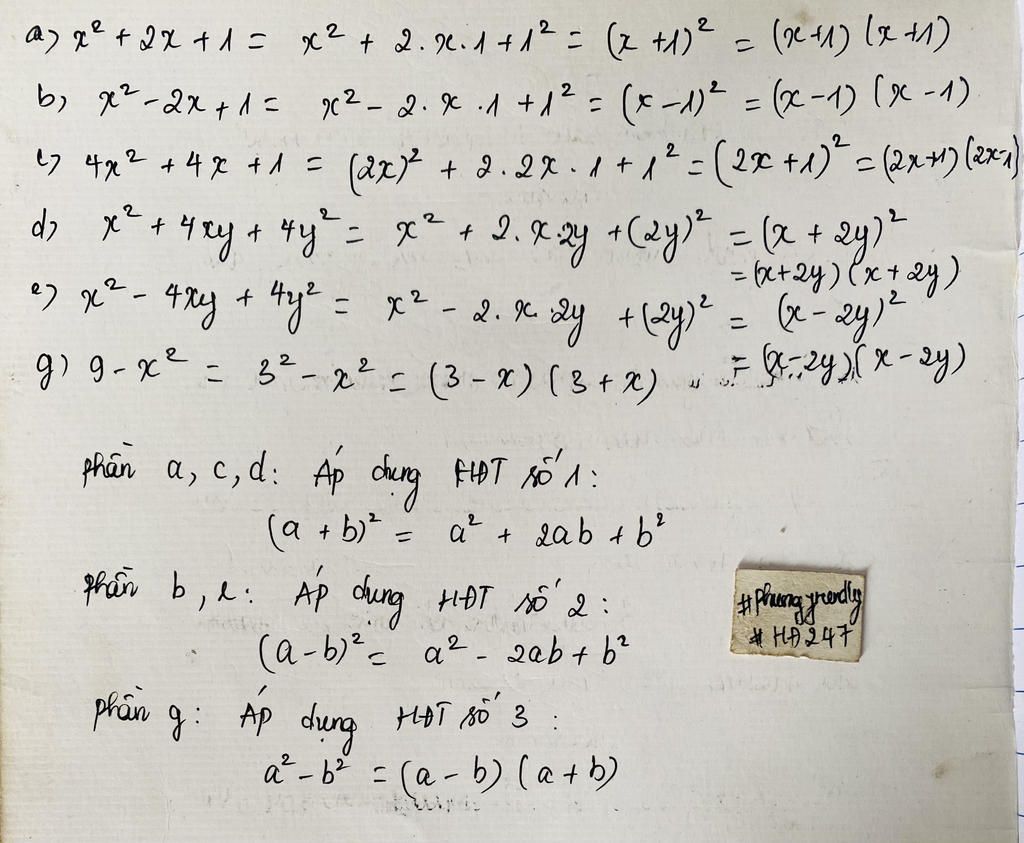 a) x² + 2x + 1 = x² + 2.x.1 + 1² = (x +1)² = (x+1) (x+1)
b) x² - 2x + 1 = x² - 2.x.1 + 1² = (x - 1)² = (x - 1) (x - 1)
c) 4x² + 4x + 1 = (2x)² + 2.2x.1 + 1² = (2x + 1)² = (2x+1) (2x-1)
d) x² + 4xy + 4y² = x² + 2.x.2y + (2y)² = (x + 2y)²
= (x+2y) (x + 2y)
e) x² - 4xy + 4y² = x² - 2.x.2y + (2y)² = (x - 2y)²
= (x - 2y) (x - 2y)
g) 9 - x² = 3² - x² = (3 - x) (3 + x)
phần a, c, d: Áp dụng HĐT số 1:
(a + b)² = a² + 2ab + b²
phần b, e: Áp dụng HĐT số 2:
(a - b)² = a² - 2ab + b²
phần g: Áp dụng HĐT số 3:
a² - b² = (a - b) (a + b)
# HĐ247